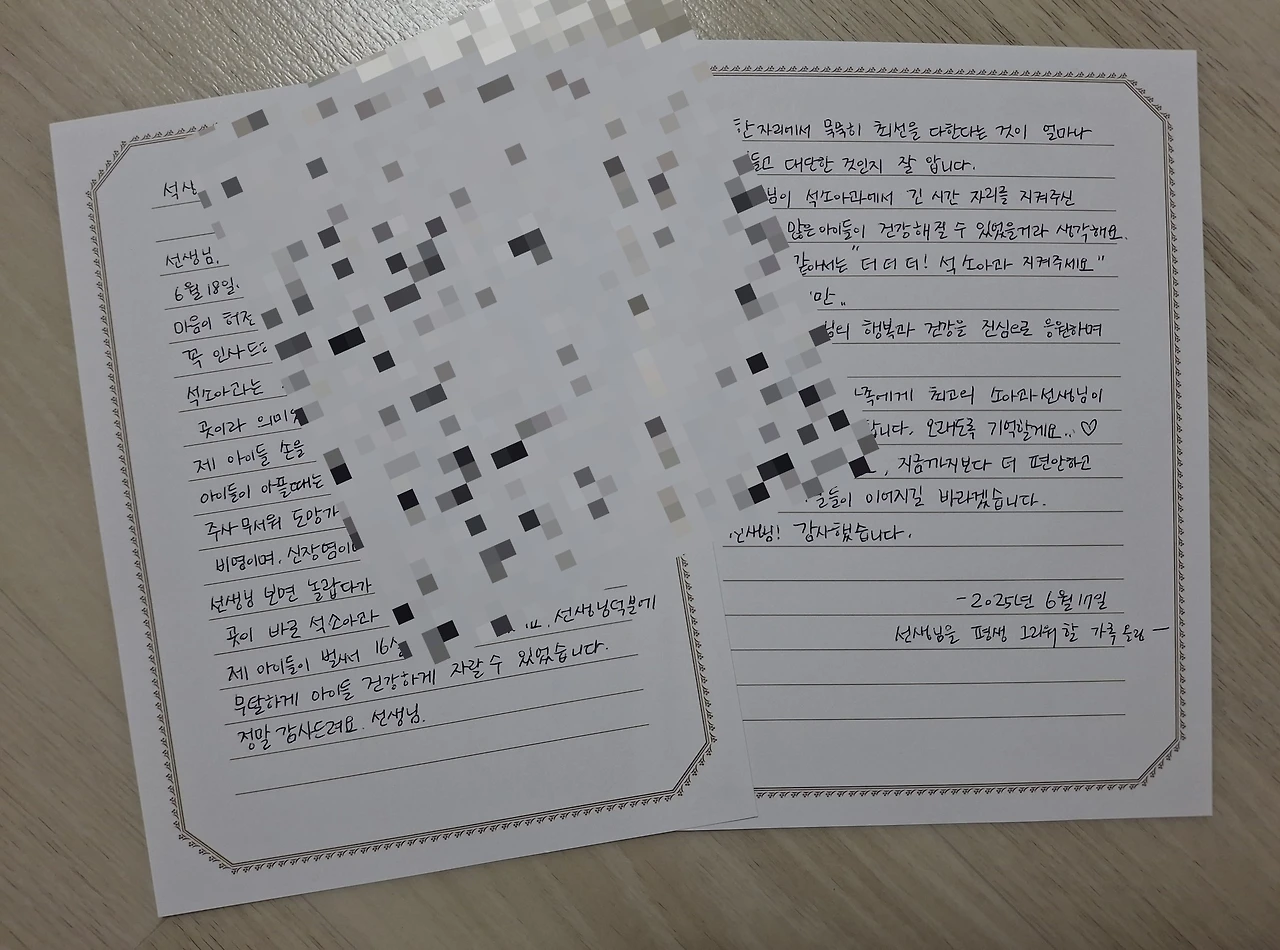 선생님.
6월 18일.
마음이 허전
꼭 인사드
석소아과는
곳이라 의미
제 아이들 손을
아이들이 아플때는
주사 무서워 도망가
비명이며, 신장염이
선생님 보면 놀랍다가
곳이 바로 석소아과
제 아이들이 벌써 16
선생님덕분에
무탈하게 아이들 건강하게 자랄 수 있었습니다.
정말 감사드려요. 선생님.
한 자리에서 묵묵히 최선을 다한다는 것이 얼마나
들고 대단한 것인지 잘 압니다.
님이 석소아과에서 긴 시간 자리를 지켜주신
많은 아이들이 건강해질 수 있었을거라 생각해요.
같아서는 "더 더 더! 석소아과 지켜주세요"
만..
님의 행복과 건강을 진심으로 응원하며
족에게 최고의 소아과선생님이
합니다. 오래도록 기억할게요.. ♡
, 지금까지보다 더 편안하고
들이 이어지길 바라겠습니다.
선생님! 감사했습니다.
- 2025년 6월 17일
선생님을 평생 그리워 할 가족 올림 -